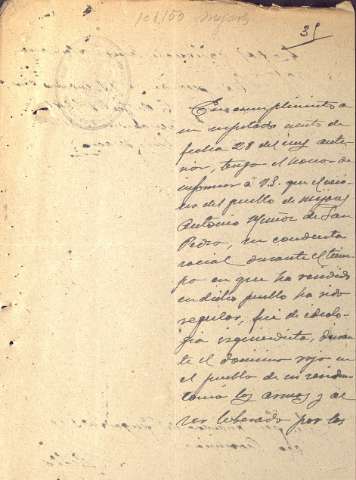 101/50 Mijas
35
En cumplimiento a
su respetado escrito de
fecha 28 del mes ante-
rior, tengo el honor de
informar á V.S. que el veci-
no del pueblo de Mijas
Antonio Muñoz de San
Pedro, su conducta
social durante el tiem-
po en que ha residido
en dicho pueblo ha sido
regular, fué de ideolo-
gia izquierdista, duran-
te el dominio rojo en
el pueblo de su residen
tomo las armas y al
ser liberado por las